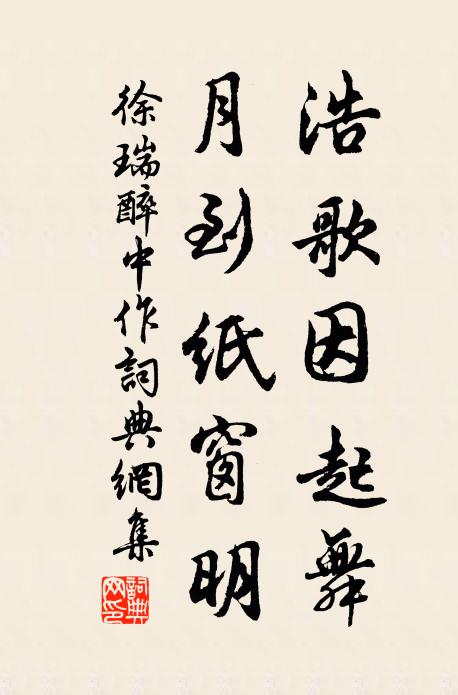 浩歌因起舞
月到紙窗明
徐瑞醉中作詞典網集
詞典网印